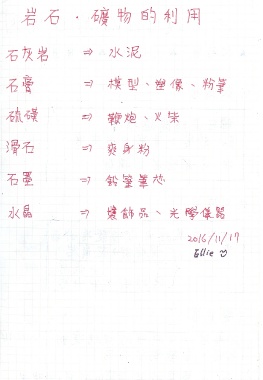 岩石·礦物的利用
石灰岩 ⇒ 水泥
石膏 ⇒ 模型、塑像、粉筆
硫磺 ⇒ 鞭炮、火柴
滑石 ⇒ 爽身粉
石墨 ⇒ 鉛筆筆芯
水晶 ⇒ 裝飾品、光學儀器
2016/11/17
Ellie